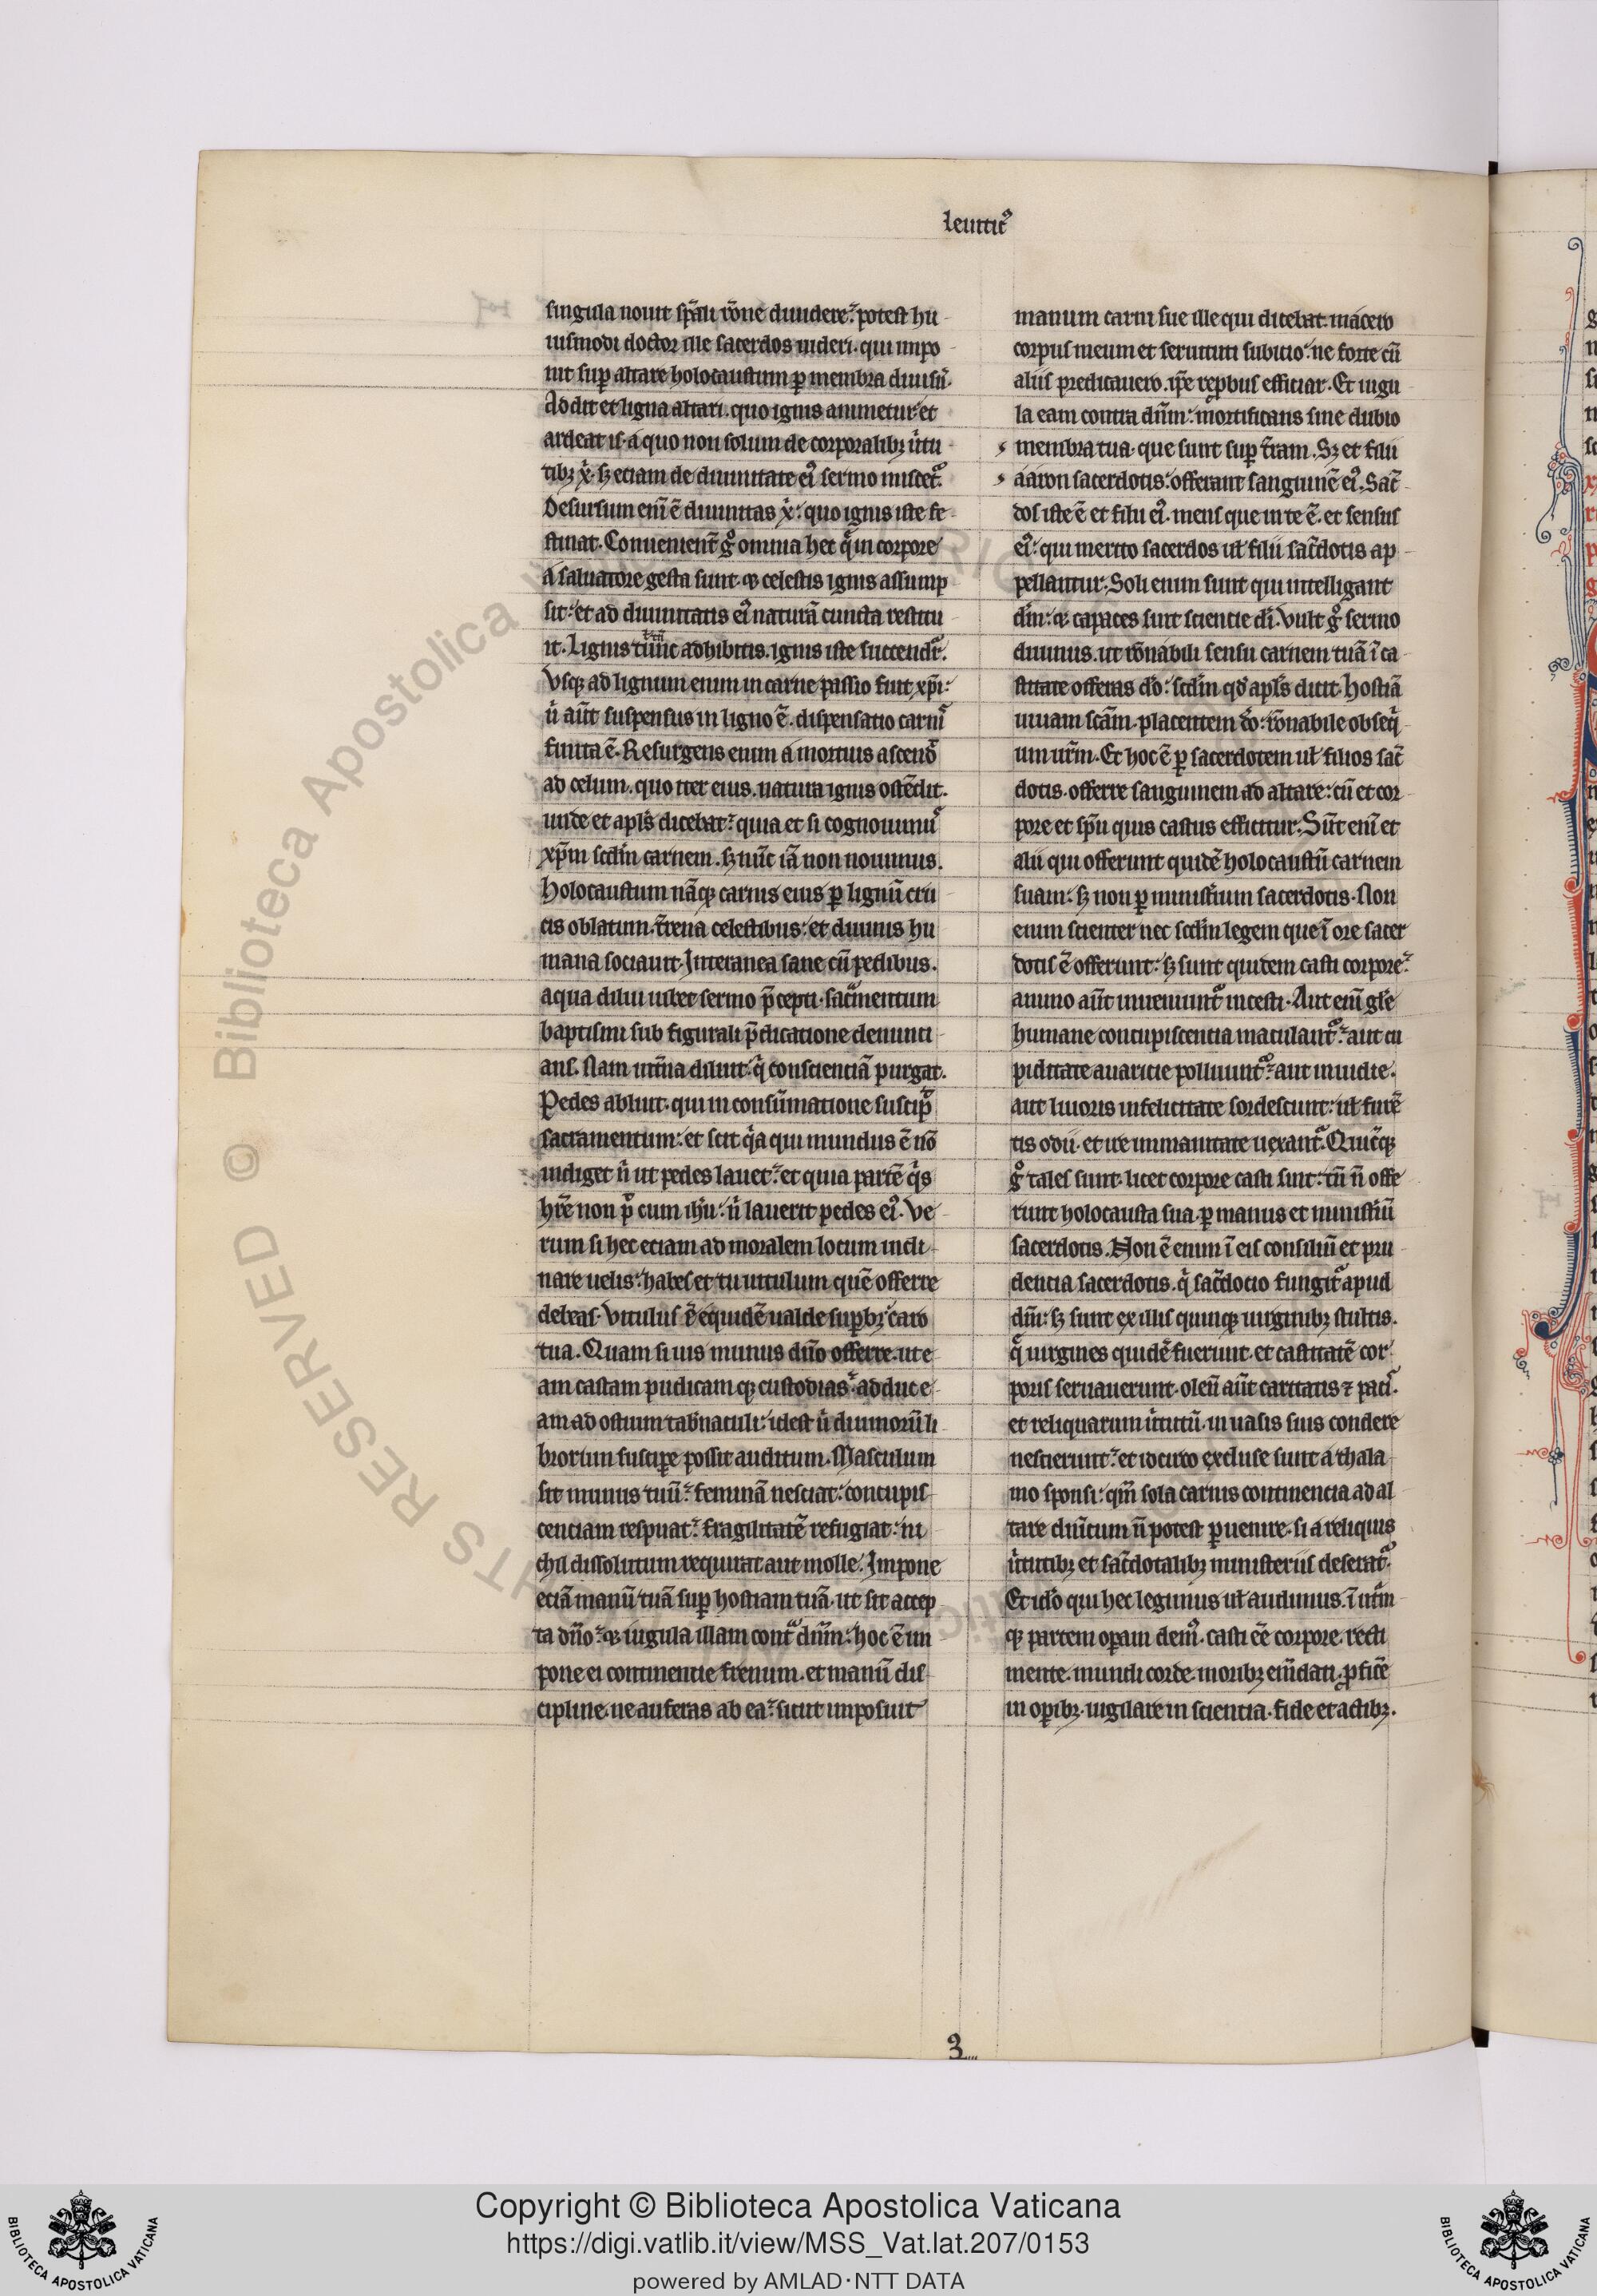 leuitic᷒
singula nouit sp̄ali rōne diuidere. potest hu
iusmodi doctor ille sacerdos uideri. qui impo
nit suꝑ altare holocaustum ꝑ membra diuisū.
Addit et ligna altari. quo ignis animetur et
ardeat is. a quo non solum de corporalibꝫ ůtu
tibꝫ x̊. sꝫ eciam de diuinitate ei᷒ sermo miscet᷑.
Desursum eni ē diuinitas x̊. quo ignis iste fe
stinat. Conuenient̄ gͦ omnia hec q̄ in corpore
a saluatore gesta sunt. qꝫ celestis ignis assump
sit. et ad diuinitatis ei᷒ naturā cuncta restitu
it. Lignis adhibitis. ignis iste succendit᷑.
Vsqꝫ ad lignum enim in carne passio fuit xp̄i.
ů aūt suspensus in ligno ē. dispensatio carnis
finita ē. Resurgens enim a mortuis ascendit
ad celum. quo iter eius. natura ignis ostēdit.
unde et apl̄s dicebat. quia et si cognouimu᷒
xp̄m scd̄m carnem. sꝫ nūc iā non nouimus.
Holocaustum nāqꝫ carnis eius ꝑ lignū cru
cis oblatum. t̄rena celestibus. et diuinis hu
mana sociauit. Interanea sane cū pedibus.
aqua dilui iubet sermo p̄cepti. sac̄mentum
baptismi sub figurali p̄dicatione denunci
ans. Nam int̄na diluit. q̊ conscienciā purgat.
Pedes abluit. qui in consūmatione suscip̄
sacramentum. et scit q̊a qui mundus ē nō
indiget n̊ ut pedes lauet. et quia partē q̊s
hr̄e non p̊ cum ih̄u. n̊ lauerit pedes ei᷒. Ve
rum si hec eciam ad moralem locum incli
nare uelis. habes et tu uitulum quē offerre
debeas. Vitulus ē equidē ualde suꝑbꝫ caro
tua. Quam si uis munus dn̄o offerre. ut e
am castam pudicamqꝫ custodias. adduc e
am ad ostium tab̄naculi. idest ů diuinorū li
brorum suscipe possit auditum. Masculum
sit munus tuū. feminā nesciat. concupis
cenciam respuat. fragilitatē refugiat. ni
chil dissolutum requirat aut molle. Impone
eciā manū tuā suꝑ hostiam tuā. ut sit accep
ta dn̄o. qꝫ iugula illam cont᷑ dn̄m. hoc ē im
pone ei continentie frenum. et manū dis
cipline. ne auferas ab ea. sicut imposuit
manum carni sue ille qui dicebat. macero
corpus meum et seruituti subicio. ne forte cū
aliis predicauero. ip̄e rep̊bus efficiar. Et iugu
la eam contra dn̄m. mortificans sine dubio
membra tua. que sunt suꝑ t̄ram. Sꝫ et filii
aaron sacerdotis. offerant sanguinē ei᷒. Sac̄
dos iste ē et filii ei᷒. mens que in te ē. et sensus
ei᷒. qui merito sacerdos ul̄ filii sac̄dotis ap
pellantur. Soli enim sunt qui intelligant
dm̄. qꝫ capaces sunt sciencie di̅. Vult gͦ sermo
diuinus. ut rōnabili sensu carnem tuā ī ca
stitate offeras do̅. scd̄m qd̄ apl̄s dicit. hostiā
uiuam scām. placentem do̅. rōnabile obseq̊
um ur̄m. Et hoc ē ꝑ sacerdotem ul̄ filios sac̄
dotis. offerre sanguinem ad altare. cū et cor
pore et sp̄u quis castus efficitur. Sūt eni et
alii qui offerunt quidē holocaustū carnem
suam. sꝫ non ꝑ minist̄ium sacerdotis. Non
enim scienter nec scd̄m legem que ī ore sacer
dotis ē offerunt. sꝫ sunt quidem casti corpore.
animo aūt inueniunt᷑ incesti. Aut eni gl̄e
humane concupiscentia maculant᷑. aut cu
piditate auaricie polluunt᷑. aut inuidie.
aut liuoris infelicitate sordescunt. ul̄ furē
tis odii. et ire immanitate uexant᷑. Quicqꝫ
gͦ tales sunt. licet corpore casti sint. tn̄ n̄ offe
runt holocausta sua. ꝑ manus et minist̄iū
sacerdotis. Non ē enim ī eis consiliū et pru
dencia sacerdotis. q̊ sac̄docio fungit᷑ apud
dm̄. sꝫ sunt ex illis quinqꝫ uirginibꝫ stultis.
q̄ uirgines quidē fuerunt. et castitatē cor
poris seruauerunt. oleū aūt caritatis ⁊ pacis.
et reliquarum ůtutū. in uasis suis condere
nescierunt. et idcirco excluse sunt a thala
mo sponsi. qm̄ sola carnis continencia ad al
tare diuīcum n̄ potest ꝑuenire. si a reliquis
ůtutibꝫ et sac̄dotalibꝫ ministeriis deserat᷑.
Et ido̅ qui hec legimus ul̄ audimus. ī utm̄
qꝫ partem oꝑam dem᷒. casti eē corpore. recti
mente. mundi corde. moribꝫ emd̄ati. ꝓficē
in oꝑibꝫ. uigilare in sciencia. fide et actibꝫ.
3
Copyright © Biblioteca Apostolica Vaticana
https://digi.vatlib.it/view/MSS_Vat.lat.207/0153
powered by AMLAD·NTT DATA
BIBLIOTECA APOSTOLICA VATICANA
BIBLIOTECA APOSTOLICA VATICANA